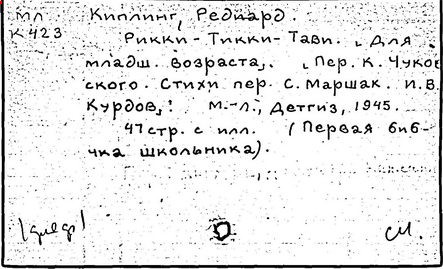 мл Киплинг, Редиард.
К423 Рикки-Тикки-Тави. Для
младш. возраста. Пер. К. Чуков
ского. Стихи пер. С. Маршак. И.В.
Курдов,! М.-Л., Детгиз, 1945.
47 стр. с илл. (Первая биб-
чка школьника).
см.